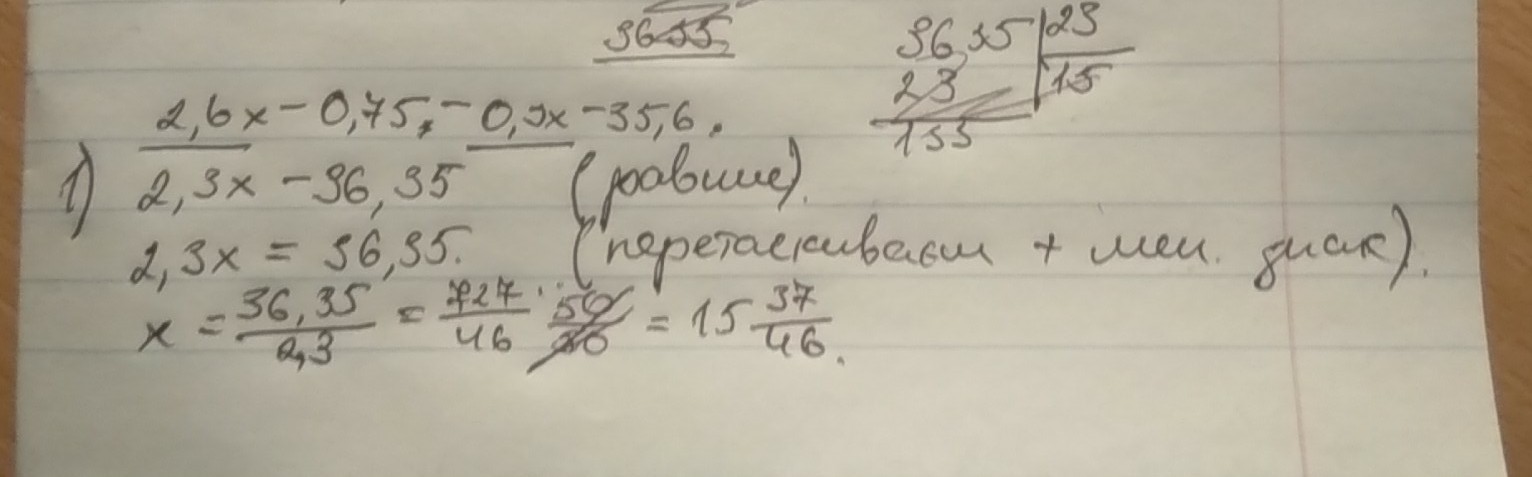 3635
36,35 23
23 15
133
2,6x - 0,75 - 0,3x - 35,6.
1) 2,3x - 36,35 (равные).
2,3x = 36,35. (перетаскиваем + мен. знак).
x = 36,35/2,3 = 727/46 50/30 = 15 37/46.